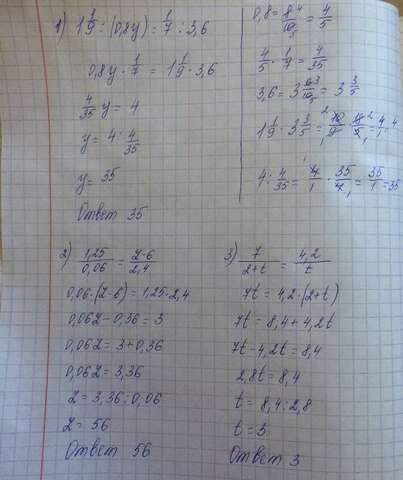 1) 1 1/9 : (0,8y) = 1/7 : 3,6
0,8y · 1/7 = 1 1/9 · 3,6
4/35 y = 4
y = 4 : 4/35
y = 35
Ответ 35
0,8 = 8/10 = 4/5
4/5 · 1/7 = 4/35
3,6 = 3 6/10 = 3 3/5
1 1/9 · 3 3/5 = 10/9 · 18/5 = 4/1 = 4
4 · 4/35 = 4/1 · 35/4 = 35/1 = 35
2) 1,25/0,06 = z-6/2,4
0,06 · (z-6) = 1,25 · 2,4
0,06z - 0,36 = 3
0,06z = 3 + 0,36
0,06z = 3,36
z = 3,36 : 0,06
z = 56
Ответ 56
3) 7/2+t = 4,2/t
7t = 4,2 · (2+t)
7t = 8,4 + 4,2t
7t - 4,2t = 8,4
2,8t = 8,4
t = 8,4 : 2,8
t = 3
Ответ 3